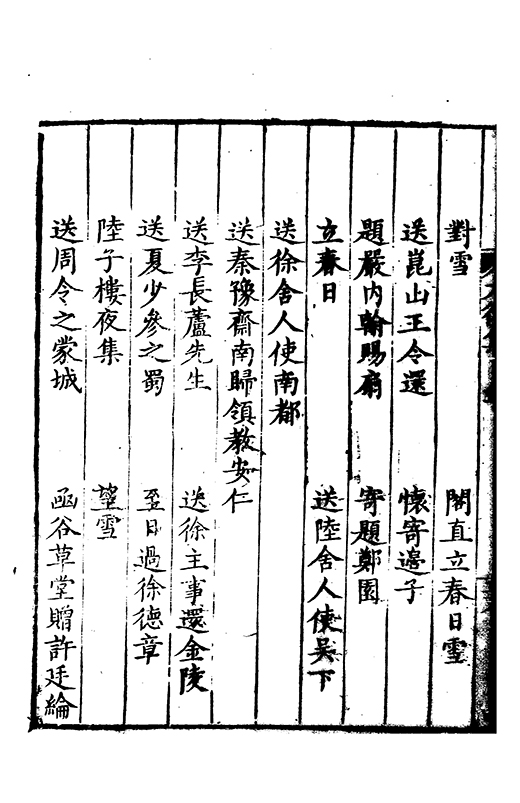 對雪　閣直立春日雪
送崑山王令還　懷寄邊子
題嚴內翰賜扇　寄題鄭園
立春日　送陸舍人使吴下
送徐舍人使南都
送秦豫齋南歸領教安仁
送李長蘆先生　送徐主事還金陵
送夏少參之蜀　至日過徐德章
陸子樓夜集　望雪
送周令之蒙城　函谷草堂贈許廷綸